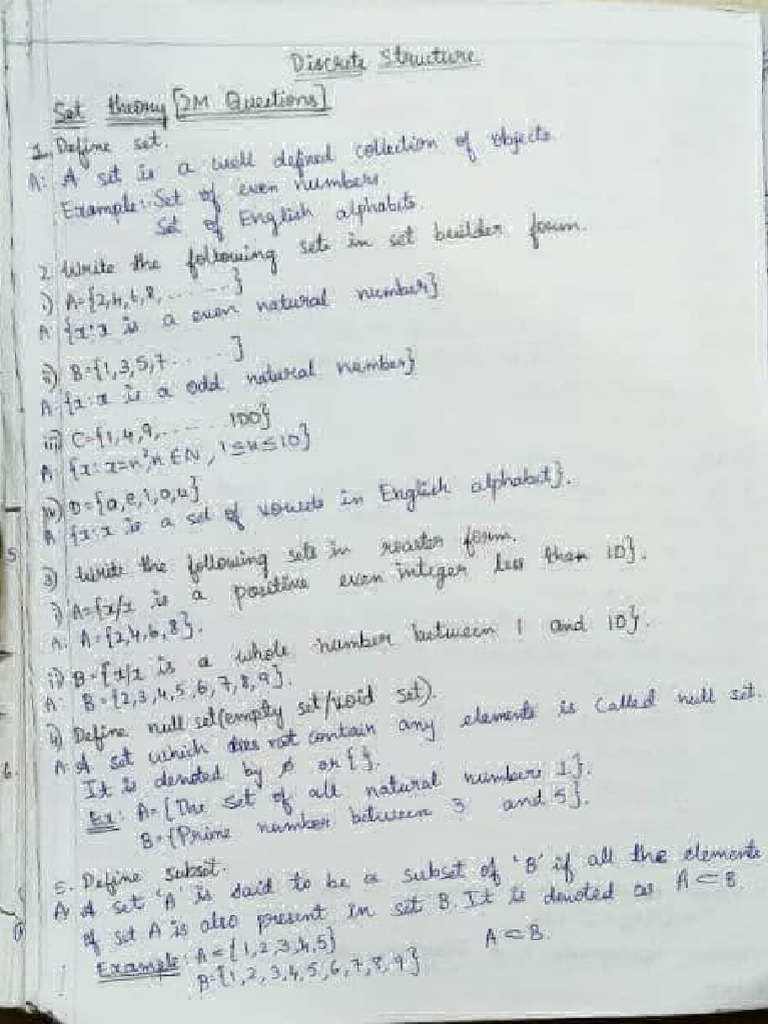 Discrete Structure
Set theory [2M Questions]
1. Define set.
A: A set is a well defined collection of objects
Example:- Set of even numbers
Set of English alphabets.
2. Write the following sets in set builder form.
i) A={2,4,6,8,.........}
A {x:x is a even natural number}
ii) B={1,3,5,7.......}
A. {x:x is a odd natural number}
iii) C={1,4,9,...... 100}
A {x: x=n²,n ∈N, 1≤n≤10}
iv) D={a,e,i,o,u}
A {x:x is a set of vowels in English alphabet}.
3) Write the following sets in roaster form.
i) A={x/x is a positive even integer less than 10}.
A. A={2,4,6,8}.
ii) B={x/x is a whole number between 1 and 10}.
A: B={2,3,4,5,6,7,8,9}.
4) Define null set(empty set/void set).
A: A set which does not contain any elements is called null set.
It is denoted by ø or { }.
Ex: A={The set of all natural numbers 1}.
B={Prime number between 3 and 5}.
5. Define subset.
A: A set 'A' is said to be a subset of 'B' if all the elements
of set A is also present in set B. It is denoted as A⊂B.
Example: A={1,2,3,4,5} A⊂B.
B={1,2,3,4,5,6,7,8,9}